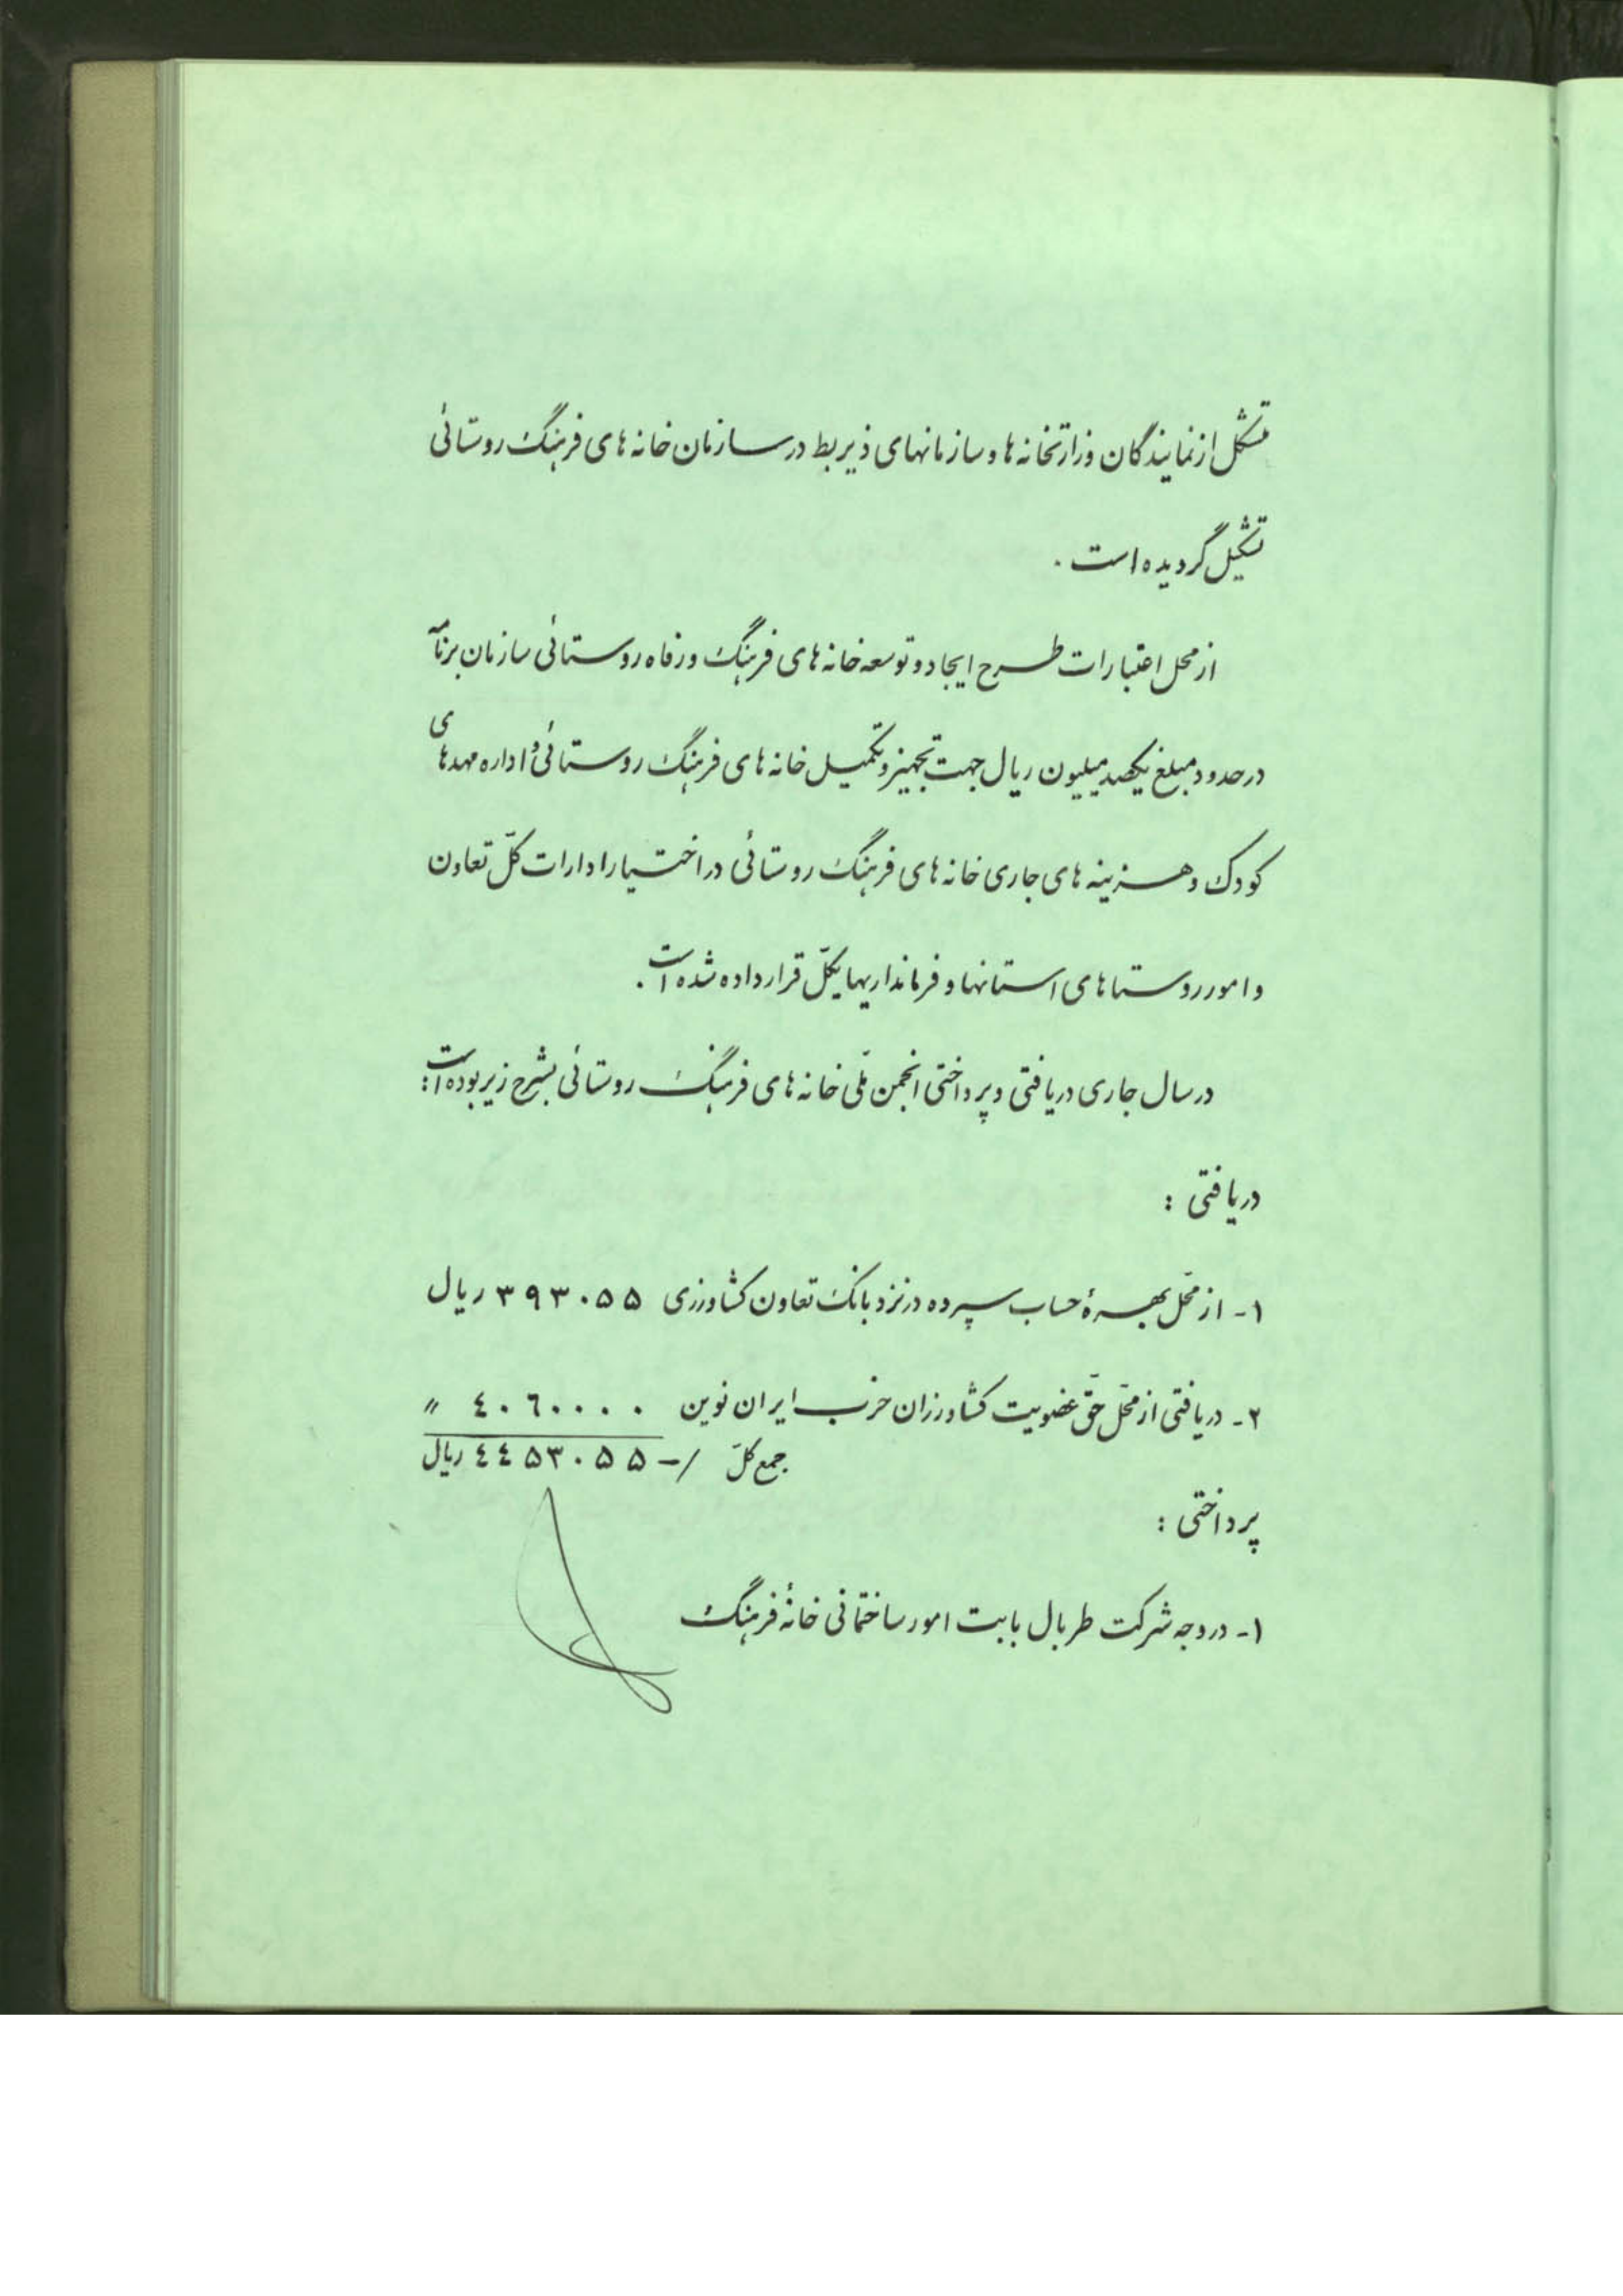 متشکل از نمایندگان وزارتخانه ها و سازمانهای ذیربط در سازمان خانه های فرهنگ روستائی
تشکیل گردیده است .
از محل اعتبارات طرح ایجاد و توسعه خانه های فرهنگ و رفاه روستائی سازمان برنامه
در حدود مبلغ یکصد میلیون ریال جهت تجهیز و تکمیل خانه های فرهنگ روستائی و اداره مهدهای
کودک و هزینه های جاری خانه های فرهنگ روستائی در اختیار ادارات کلّ تعاون
و امور روستاهای استانها و فرمانداریهای کلّ قرار داده شده است .
در سال جاری دریافتی و پرداختی انجمن ملّی خانه های فرهنگ روستائی بشرح زیر بوده است :
دریافتی :
۱- از محّل بهرۀ حساب سپرده در نزد بانک تعاون کشاورزی ۳۹۳۰۵۵ ریال
۲- دریافتی از محّل حقّ عضویت کشاورزان حزب ایران نوین ٤۰٦۰۰۰۰ "
جمع کلّ -/٤٤۵۳۰۵۵ ریال
پرداختی :
۱- در وجه شرکت طربال بابت امور ساختمانی خانۀ فرهنگ